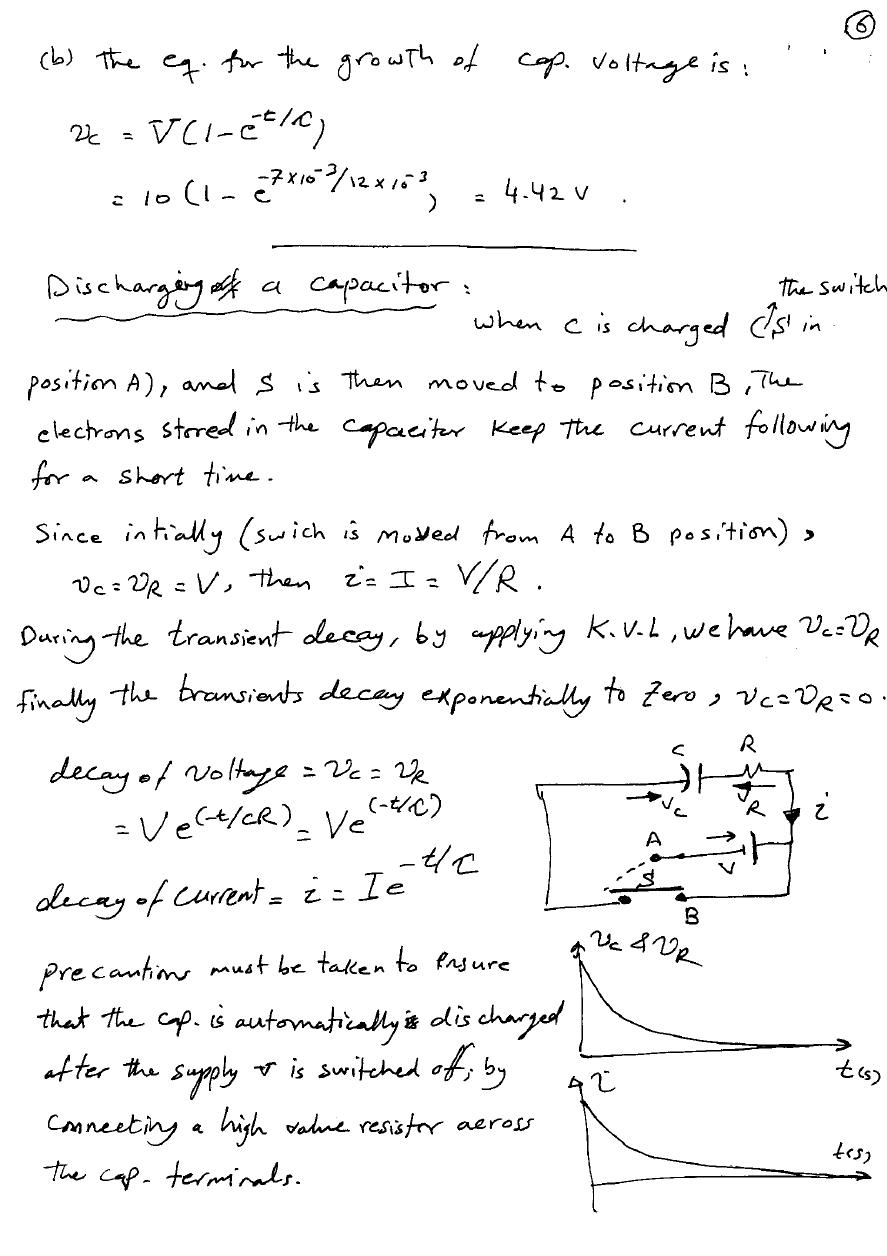 6
(b) The eq. for the growth of cap. voltage is :
vc = V(1-e^-t/τ)
= 10 (1 - e^-7×10^-3/12×10^-3) = 4.42 V .
Discharging of a capacitor :
the switch
when C is charged (S in
position A), and S is then moved to position B, The
electrons stored in the capacitor keep the current following
for a short time.
Since intially (swich is moved from A to B position) ,
vc = vR = V, then i = I = V/R .
During the transient decay, by applying K.V.L, we have vc = vR
finally the transients decay exponentially to zero , vc = vR = 0.
decay of voltage = vc = vR
= V e^(-t/CR) = V e^(-t/τ)
decay of current = i = I e^-t/τ
C R
vc vR i
A V
S
B
precautions must be taken to ensure
that the cap. is automatically discharged
after the supply v is switched off, by
connecting a high value resistor across
the cap. terminals.
vc & vR
t(s)
i
t(s)